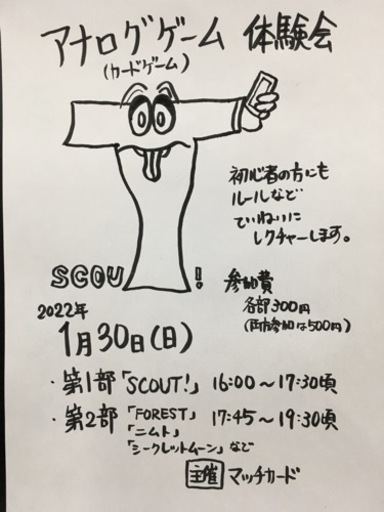 アナログゲーム 体験会
(カードゲーム)
初心者の方にも
ルールなど
ていねいに
レクチャーします。
SCOUT!
参加費
各部300円
(両方参加は500円)
2022年
1月30日(日)
・第1部「SCOUT!」 16:00～17:30頃
・第2部「FOREST」 17:45～19:30頃
「ニムト」
「シークレットムーン」など
主催 マッチカード